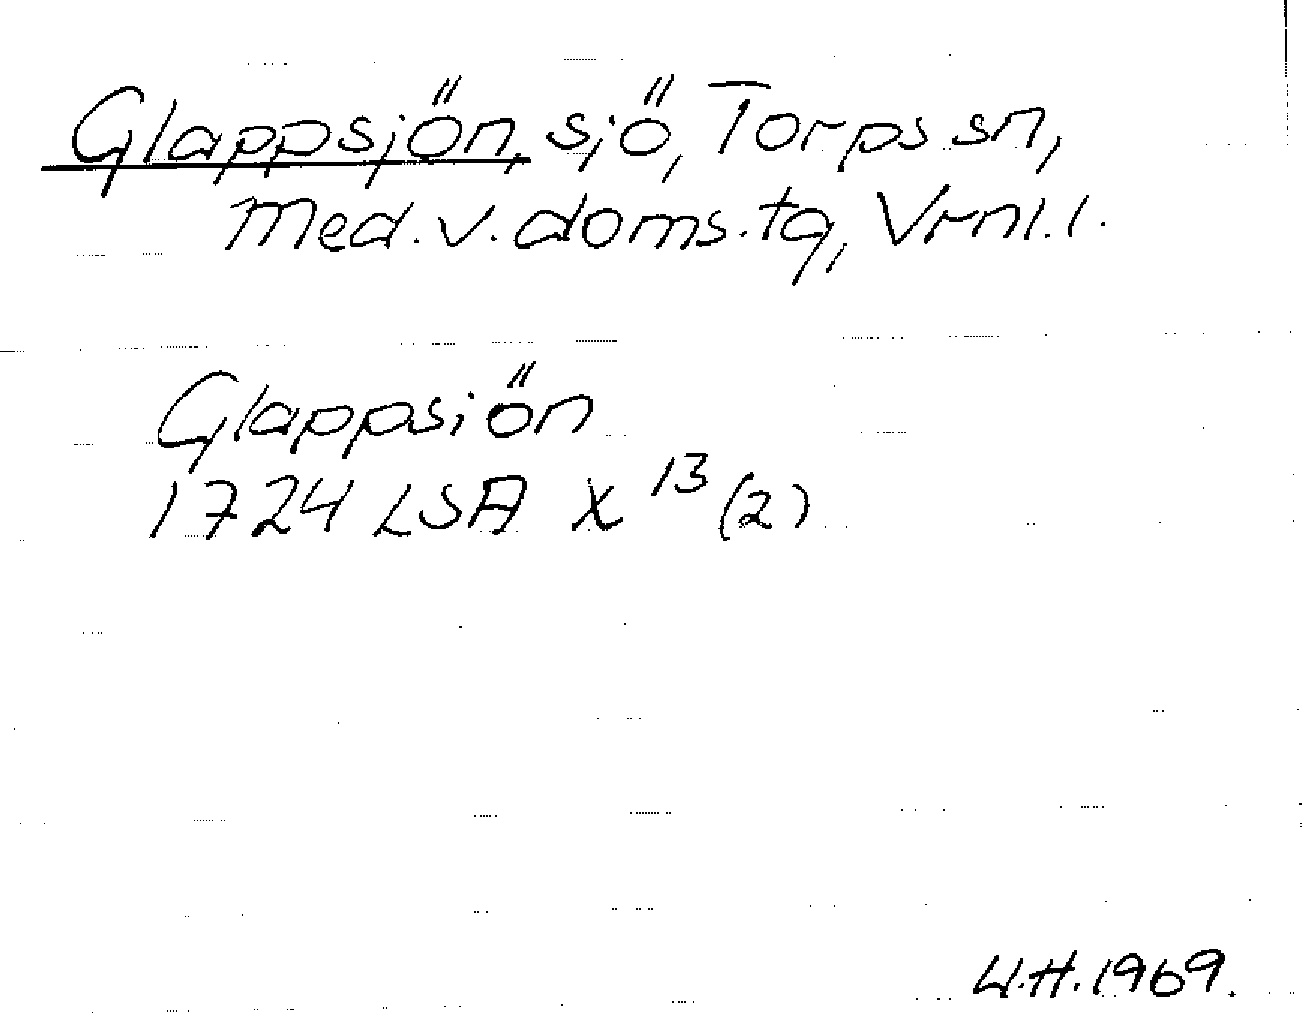 Glappsjön, sjö, Torps sn,
Med. v. doms. tg, Vrnl. l.
Glappsiön
1724 LSA X 13 (2)
U.H. 1969.